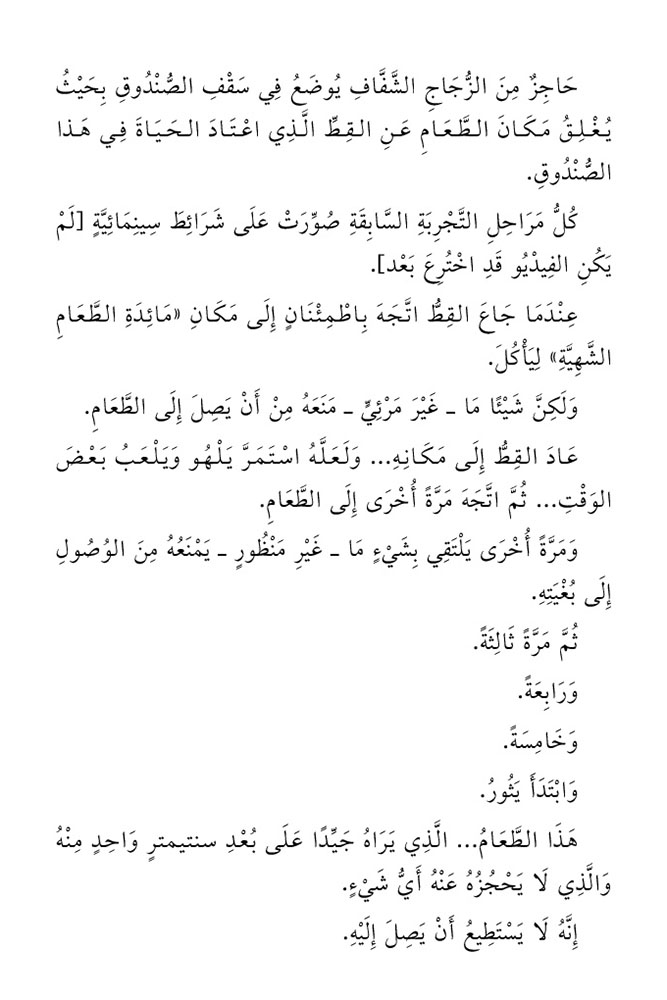 حَاجِزٌ مِنَ الزُّجَاجِ الشَّفَّافِ يُوضَعُ فِي سَقْفِ الصُّنْدُوقِ بِحَيْثُ
يُغْلِقُ مَكَانَ الطَّعَامِ عَنِ القِطِّ الَّذِي اعْتَادَ الحَيَاةَ فِي هَذا
الصُّنْدُوقِ.
كُلُّ مَرَاحِلِ التَّجْرِبَةِ السَّابِقَةِ صُوِّرَتْ عَلَى شَرَائِطَ سِينِمَائِيَّةٍ [لَمْ
يَكُنِ الفِيْدْيُو قَدِ اخْتُرِعَ بَعْد].
عِنْدَمَا جَاعَ القِطُّ اتَّجَهَ بِاطْمِئْنَانٍ إِلَى مَكَانِ «مَائِدَةِ الطَّعَامِ
الشَّهِيَّةِ» لِيَأْكُلَ.
وَلَكِنَّ شَيْئًا مَا ـ غَيْرَ مَرْئِيٍّ ـ مَنَعَهُ مِنْ أَنْ يَصِلَ إِلَى الطَّعَامِ.
عَادَ القِطُّ إِلَى مَكَانِهِ... وَلَعَلَّهُ اسْتَمَرَّ يَلْهُو وَيَلْعَبُ بَعْضَ
الوَقْتِ... ثُمَّ اتَّجَهَ مَرَّةً أُخْرَى إِلَى الطَّعَامِ.
وَمَرَّةً أُخْرَى يَلْتَقِي بِشَيْءٍ مَا ـ غَيْرِ مَنْظُورٍ ـ يَمْنَعُهُ مِنَ الوُصُولِ
إِلَى بُغْيَتِهِ.
ثُمَّ مَرَّةً ثَالِثَةً.
وَرَابِعَةً.
وَخَامِسَةً.
وَابْتَدَأَ يَثُورُ.
هَذَا الطَّعَامُ... الَّذِي يَرَاهُ جَيِّدًا عَلَى بُعْدِ سنتيمترٍ وَاحِدٍ مِنْهُ
وَالَّذِي لَا يَحْجُزُهُ عَنْهُ أَيُّ شَيْءٍ.
إِنَّهُ لَا يَسْتَطِيعُ أَنْ يَصِلَ إِلَيْهِ.